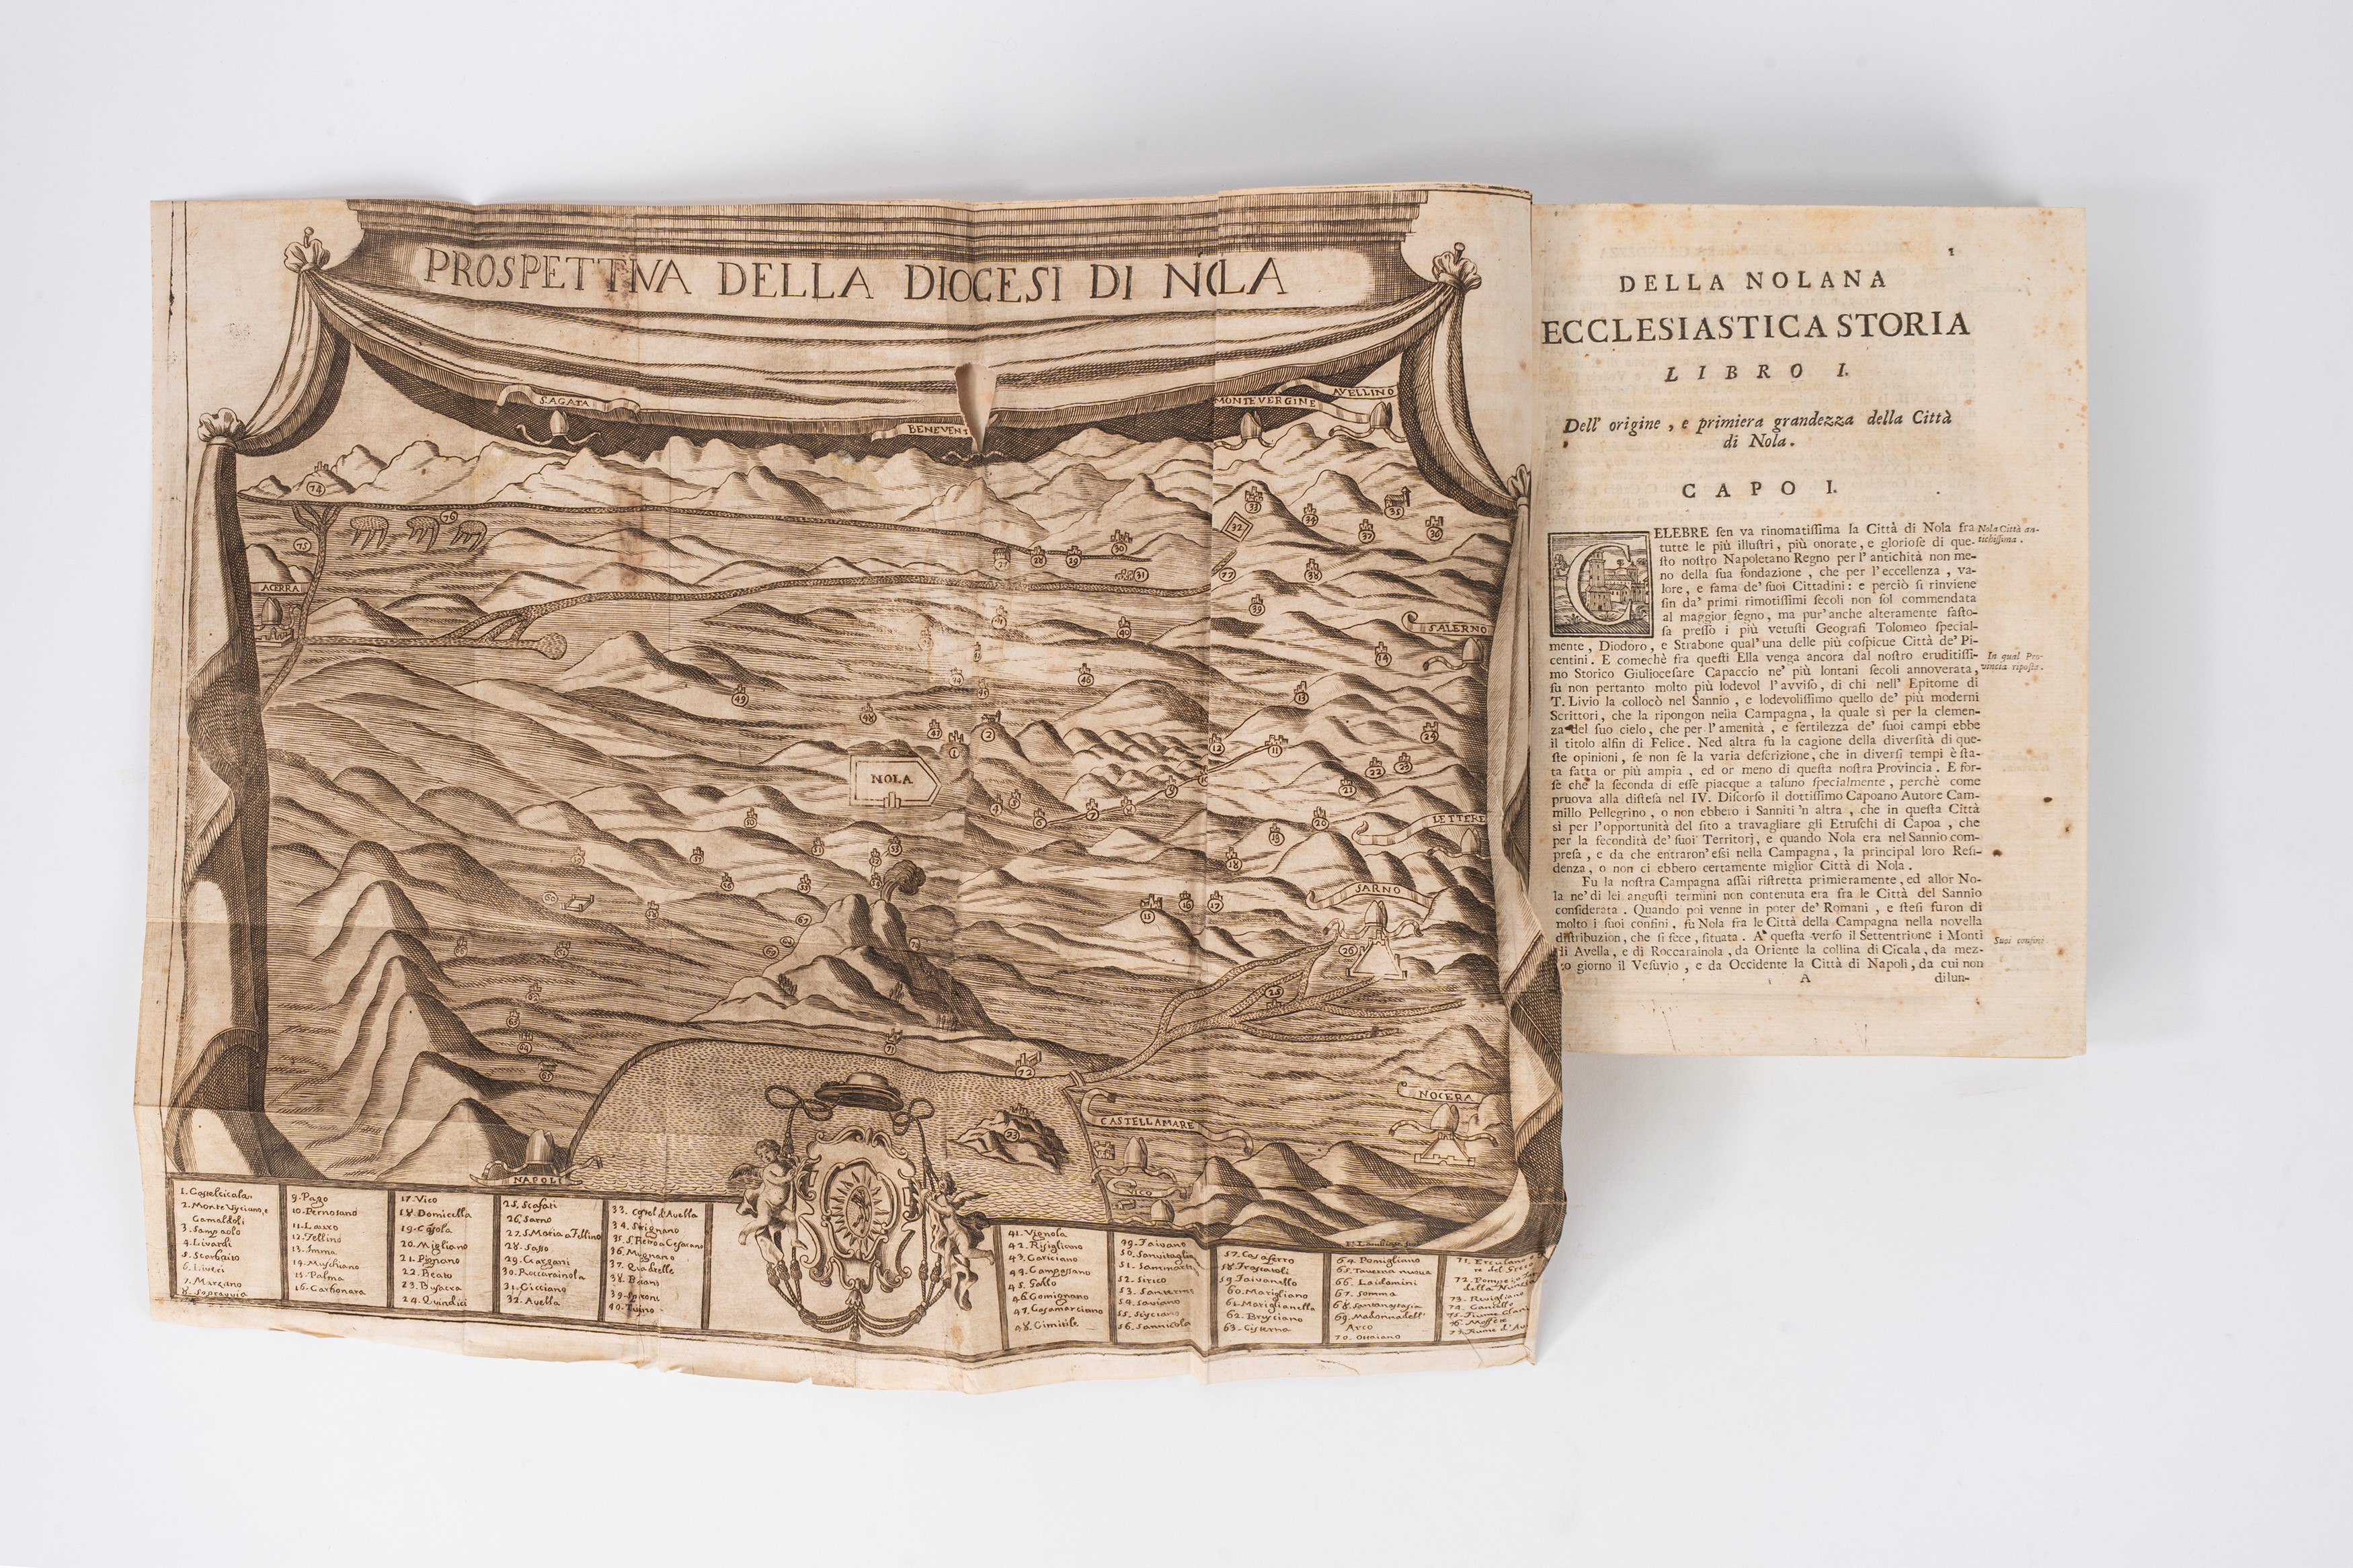 PROSPETTIVA DELLA DIOCESI DI NOLA
S.AGATA
BENEVENT
MONTEVERGINE
AVELLINO
ACERRA
SALERNO
NOLA
LETTERE
SARNO
NOCERA
CASTELLAMARE
VICO
NAPOLI
1. Castelcicala
2. Monte Visciano, e
Camaldoli
3. Sampaolo
4. Livardi
5. Scarvaito
6. Liveri
7. Marzano
8. Sopravvia
9. Pago
10. Pernosano
11. Lauro
12. Tellino
13. Imma
14. Muschiano
15. Palma
16. Carbonara
17. Vico
18. Domicella
19. Casola
20. Migliano
21. Pignano
22. Beato
23. Busacra
24. Quindici
25. Scafati
26. Sarno
27. S. Maria a Tillino
28. Sasso
29. Gargani
30. Roccarainola
31. Cicciano
32. Avella
33. Castel d'Avella
34. Sirignano
35. S. Pietro a Cesarano
36. Mugnano
37. Quadrelle
38. Baiani
39. Sperone
40. Tufino
41. Vignola
42. Risigliano
43. Gariciano
44. Campasano
45. Gallo
46. Comignano
47. Casamarciano
48. Cimitile
49. Faivano
50. Sanvitaglia
51. Sammarc
52. Sirico
53. Sanerim
54. Saviano
55. Sisciano
56. Sannicola
57. Casaferro
58. Trascaroli
59. Faivanello
60. Marigliano
61. Mariglianella
62. Brusciano
63. Cisterna
64. Pomigliano
65. Taverna nuova
66. Laidomini
67. Somma
68. Santanastasia
69. Madonna dell'
Arco
70. Ottaiano
71. Erculano
re del Greco
72. Pompei
della Nunzia
73. Rovigliano
74. Cancello
75. Fiume Clani
76. Moffete
77. Fiume d'Av
1
DELLA NOLANA
ECCLESIASTICA STORIA
LIBRO I.
Dell' origine, e primiera grandezza della Città
di Nola.
CAPO I.
CELEBRE sen va rinomatissima la Città di Nola fra
tutte le più illustri, più onorate, e gloriose di que-
sto nostro Napoletano Regno per l'antichità non me-
no della sua fondazione, che per l'eccellenza, va-
lore, e fama de' suoi Cittadini: e perciò si rinviene
sin da' primi rimotissimi secoli non sol commendata
al maggior segno, ma pur'anche alteramente fasto-
sa presso i più vetusti Geografi Tolomeo special-
mente, Diodoro, e Strabone qual'una delle più cospicue Città de' Pi-
centini. E comechè fra questi Ella venga ancora dal nostro eruditissi-
mo Storico Giuliocesare Capaccio ne' più lontani secoli annoverata,
fu non pertanto molto più lodevol l'avviso, di chi nell' Epitome di
T. Livio la collocò nel Sannio, e lodevolissimo quello de' più moderni
Scrittori, che la ripongon nella Campagna, la quale sì per la clemen-
za del suo cielo, che per l'amenità, e fertilezza de' suoi campi ebbe
il titolo alfin di Felice. Ned altra fu la cagione della diversità di que-
ste opinioni, se non se la varia descrizione, che in diversi tempi è sta-
ta fatta or più ampia, ed or meno di questa nostra Provincia. E for-
se che la seconda di esse piacque a taluno specialmente, perchè come
pruova alla distesa nel IV. Discorso il dottissimo Capoano Autore Cam-
millo Pellegrino, o non ebbero i Sanniti 'n altra, che in questa Città
sì per l'opportunità del sito a travagliare gli Etruschi di Capoa, che
per la secondità de' suoi Territorj, e quando Nola era nel Sannio com-
presa, e da che entraron' essi nella Campagna, la principal loro Resi-
denza, o non ci ebbero certamente miglior Città di Nola.
Fu la nostra Campagna assai ristretta primieramente, ed allor No-
la ne' di lei angusti termini non contenuta era fra le Città del Sannio
considerata. Quando poi venne in poter de' Romani, e stesi furon di
molto i suoi confini, fu Nola fra le Città della Campagna nella novella
distribuzion, che si fece, situata. A questa verso il Settentrione i Monti
di Avella, e di Roccarainola, da Oriente la collina di Cicala, da mez-
zo giorno il Vesuvio, e da Occidente la Città di Napoli, da cui non
A
dilun-
Nola Città an-
tichissima.
In qual Pro-
vincia riposta.
Suoi confini